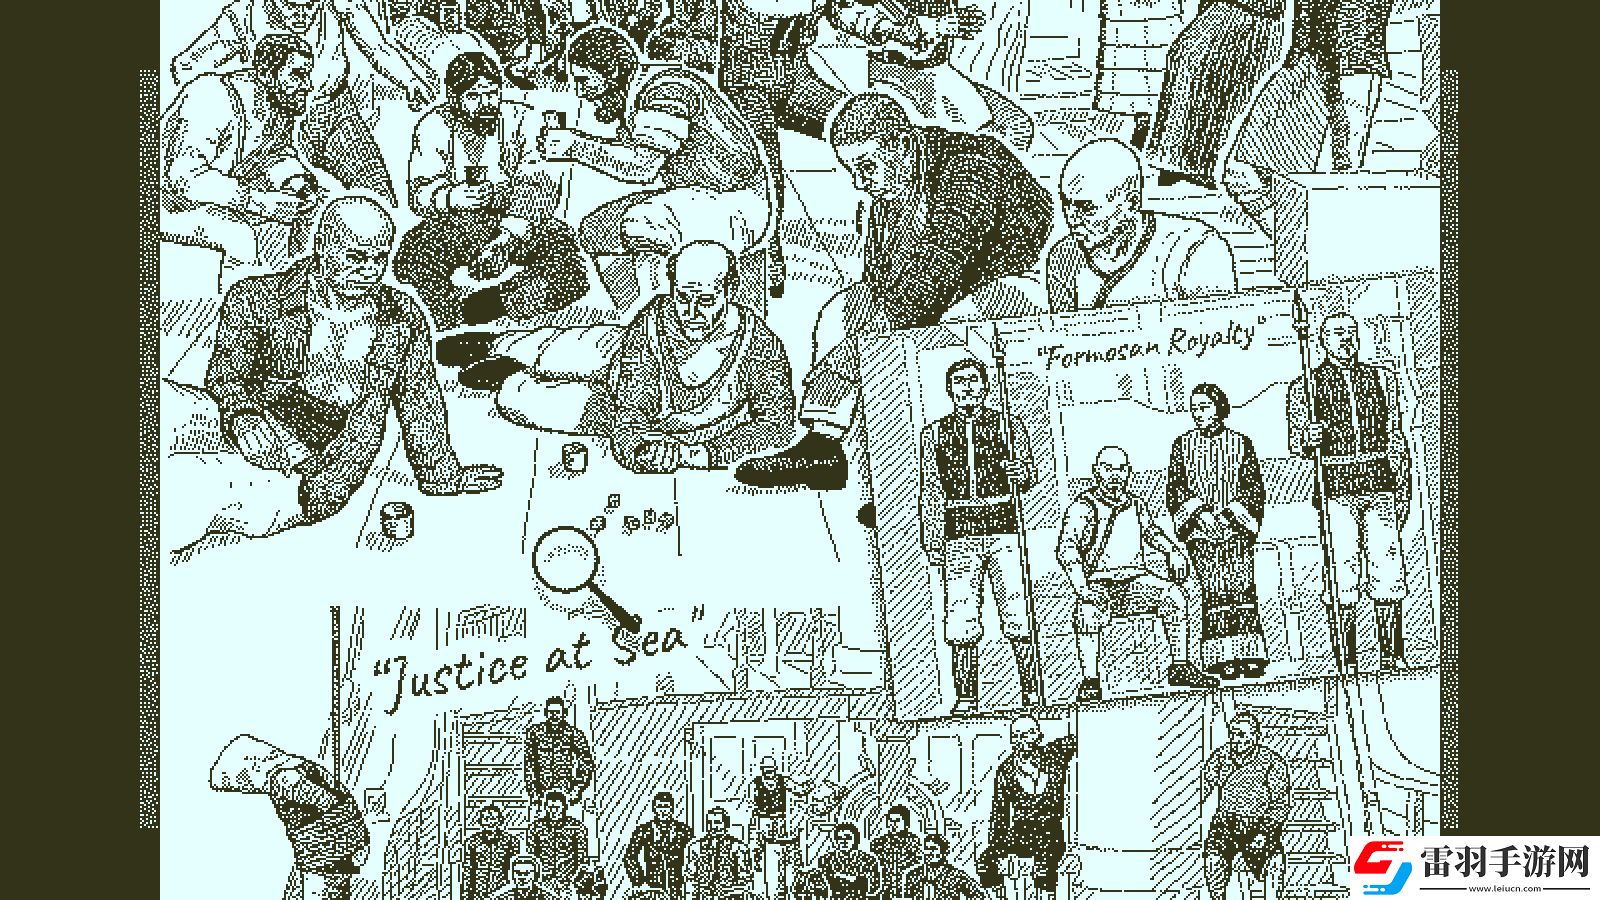 "Formosan Royalty"
"Justice at Sea"
雷羽手游网
www.leiucn.com